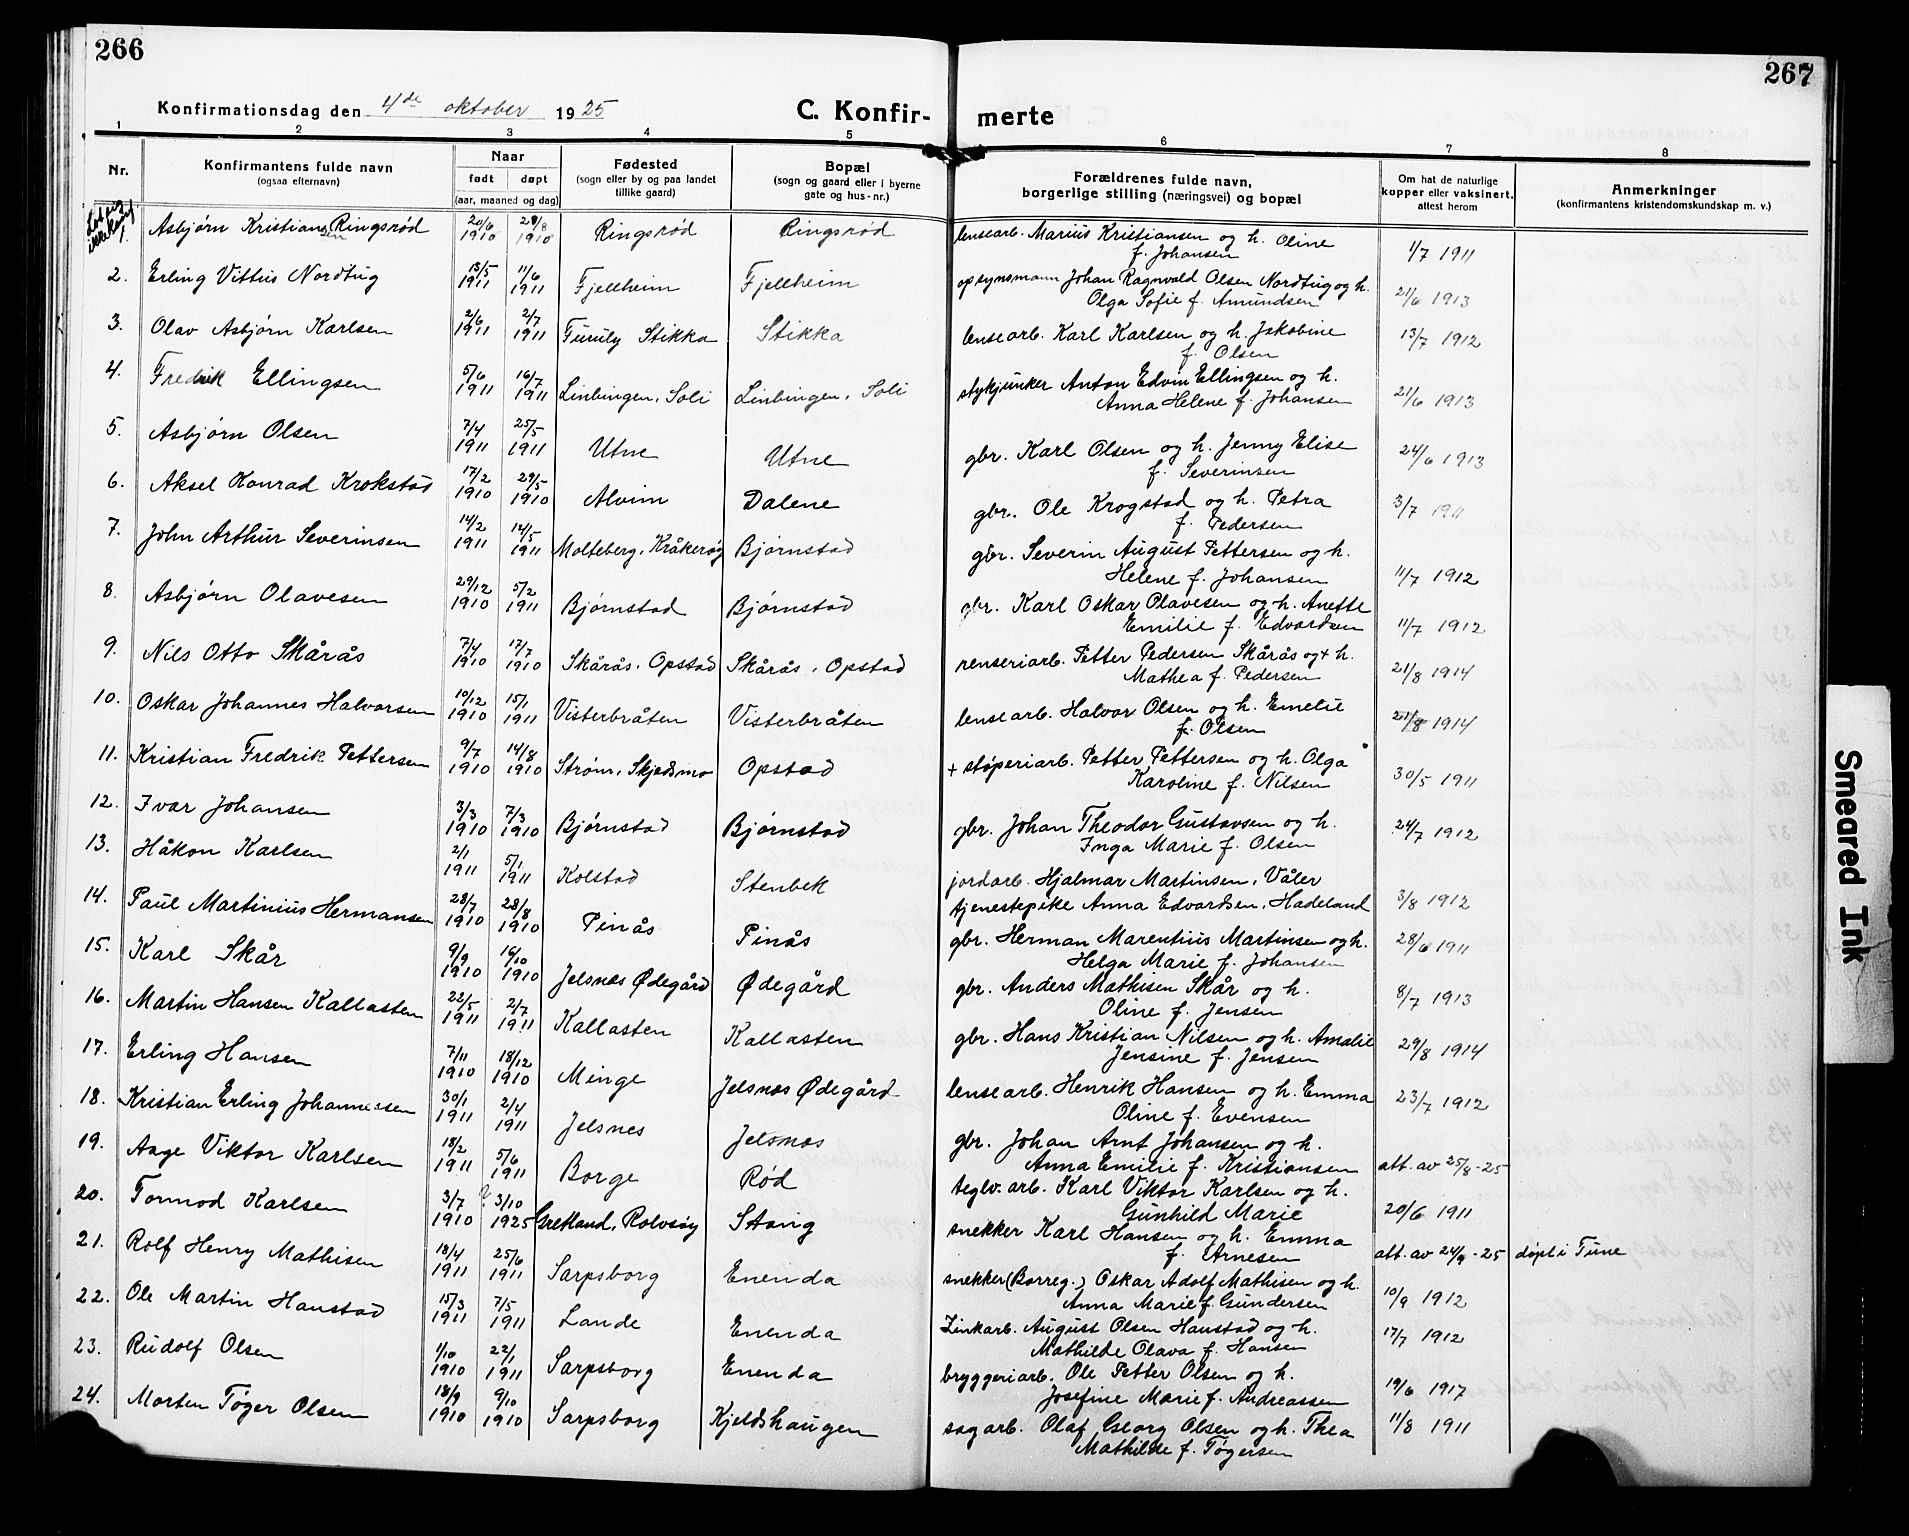 266
267
Konfirmationsdag den 4de oktober 1925
C. Konfir-
merte
1 2 3 4 5 6 7 8
Nr. Konfirmantens fulde navn (ogsaa efternavn) Naar født døpt (aar, maaned og dag) Fødested (sogn eller by og paa landet tillike gaard) Bopæl (sogn og gaard eller i byerne gate og hus-nr.) Forældrenes fulde navn, borgerlige stilling (næringsvei) og bopæl Om hat de naturlige kopper eller vaksinert, attest herom Anmerkninger (konfirmantens kristendomskundskap m. v.)
1. Asbjørn Kristiansen Ringsrød 20/6 1910 28/8 1910 Ringsrød Ringsrød lensearb. Marius Kristiansen og h. Oline f. Johansen 1/7 1911
2. Erling Vittus Nordtug 13/5 1911 11/6 1911 Fjellheim Fjellheim opsynsmann Johan Ragnvald Olsen Nordtug og h. Olga Sofie f. Amundsen 21/6 1913
3. Olav Asbjørn Karlsen 2/6 1911 2/7 1911 Furuly Stikka Stikka lensearb. Karl Karlsen og h. Jakobine f. Olsen 13/7 1912
4. Fredrik Ellingsen 5/6 1911 16/7 1911 Linbingen, Soli Linbingen, Soli stykjunker Anton Edvin Ellingsen og h. Anna Helene f. Johansen 21/6 1913
5. Asbjørn Olsen 7/4 1911 25/5 1911 Utne Utne gbr. Karl Olsen og h. Jenny Elise f. Severinsen 24/6 1913
6. Aksel Konrad Krokstad 17/2 1910 29/5 1910 Alvim Dalene gbr. Ole Krogstad og h. Petra f. Pedersen 3/7 1911
7. John Arthur Severinsen 14/2 1911 14/5 1911 Molteberg, Kråkerøy Bjørnstad gbr. Severin August Pettersen og h. Helene f. Johansen 11/7 1912
8. Asbjørn Olavesen 29/12 1910 5/2 1911 Bjørnstad Bjørnstad gbr. Karl Oskar Olavesen og h. Anette Emilie f. Edvardsen 11/7 1912
9. Nils Otto Skårås 7/4 1910 17/7 1910 Skårås, Opstad Skårås, Opstad renseriarb. Petter Pedersen Skårås og + h. Mathea f. Pedersen 21/8 1914
10. Oskar Johannes Halvorsen 10/12 1910 15/1 1911 Visterbråten Visterbråten lensearb. Halvor Olsen og h. Emelie f. Olsen 21/8 1914
11. Kristian Fredrik Pettersen 9/7 1910 14/8 1910 Strøm, Skjedsmo Opstad + støperiarb. Petter Pettersen og h. Olga Karoline f. Nilsen 30/5 1911
12. Ivar Johansen 3/3 1910 7/3 1910 Bjørnstad Bjørnstad gbr. Johan Theodor Gustavsen og h. Inga Marie f. Olsen 24/7 1912
13. Håkon Karlsen 2/1 1911 5/1 1911 Kolstad Stenbek jordarb. Hjalmar Martinsen, Våler tjenestepike Anna Edvardsen, Hadeland 3/8 1912
14. Paul Martinius Hermansen 28/7 1910 28/8 1910 Pinås Pinås gbr. Herman Marentius Martinsen og h. Helga Marie f. Johansen 28/6 1911
15. Karl Skår 9/9 1910 16/10 1910 Jelsnes Ødegård Ødegård gbr. Anders Mathisen Skår og h. Oline f. Jensen 8/7 1913
16. Martin Hansen Kallasten 22/5 1911 2/7 1911 Kallasten Kallasten gbr. Hans Kristian Nilsen og h. Amalie Jensine f. Jensen 29/8 1914
17. Erling Hansen 7/11 1910 18/12 1910 Minge Jelsnes Ødegård lensearb. Henrik Hansen og h. Emma Oline f. Evensen 23/7 1912
18. Kristian Erling Johannessen 30/1 1911 2/4 1911 Jelsnes Jelsnes gbr. Johan Arnt Johansen og h. Anna Emilie f. Kristiansen att. av 25/8-25
19. Aage Viktor Karlsen 18/2 1911 5/6 1911 Borge Rød teglv. arb. Karl Viktor Karlsen og h. Gunhild Marie 20/6 1911
20. Tormod Karlsen 3/7 1910 3/10 1925 Gretland, Rolvsøy Stang snekker Karl Hansen og h. Emma f. Arnesen att. av 24/9-25 døpt i Tune
21. Rolf Henry Mathisen 18/4 1911 25/6 1911 Sarpsborg Enenda snekker (Borreg.) Oskar Adolf Mathisen og h. Anna Marie f. Gundersen 10/9 1912
22. Ole Martin Hanstad 15/3 1911 7/5 1911 Lande Enenda Zinkarb. August Olsen Hanstad og h. Mathilde Olava f. Hansen 17/7 1912
23. Rudolf Olsen 1/10 1910 22/1 1911 Sarpsborg Enenda bryggeriarb. Ole Petter Olsen og h. Josefine Marie f. Andreassen 19/6 1917
24. Morten Tøger Olsen 18/9 1910 9/10 1910 Sarpsborg Kjeldshaugen sagarb. Olaf Georg Olsen og h. Thea Mathilde f. Tøgersen 11/8 1911
Smeared Ink